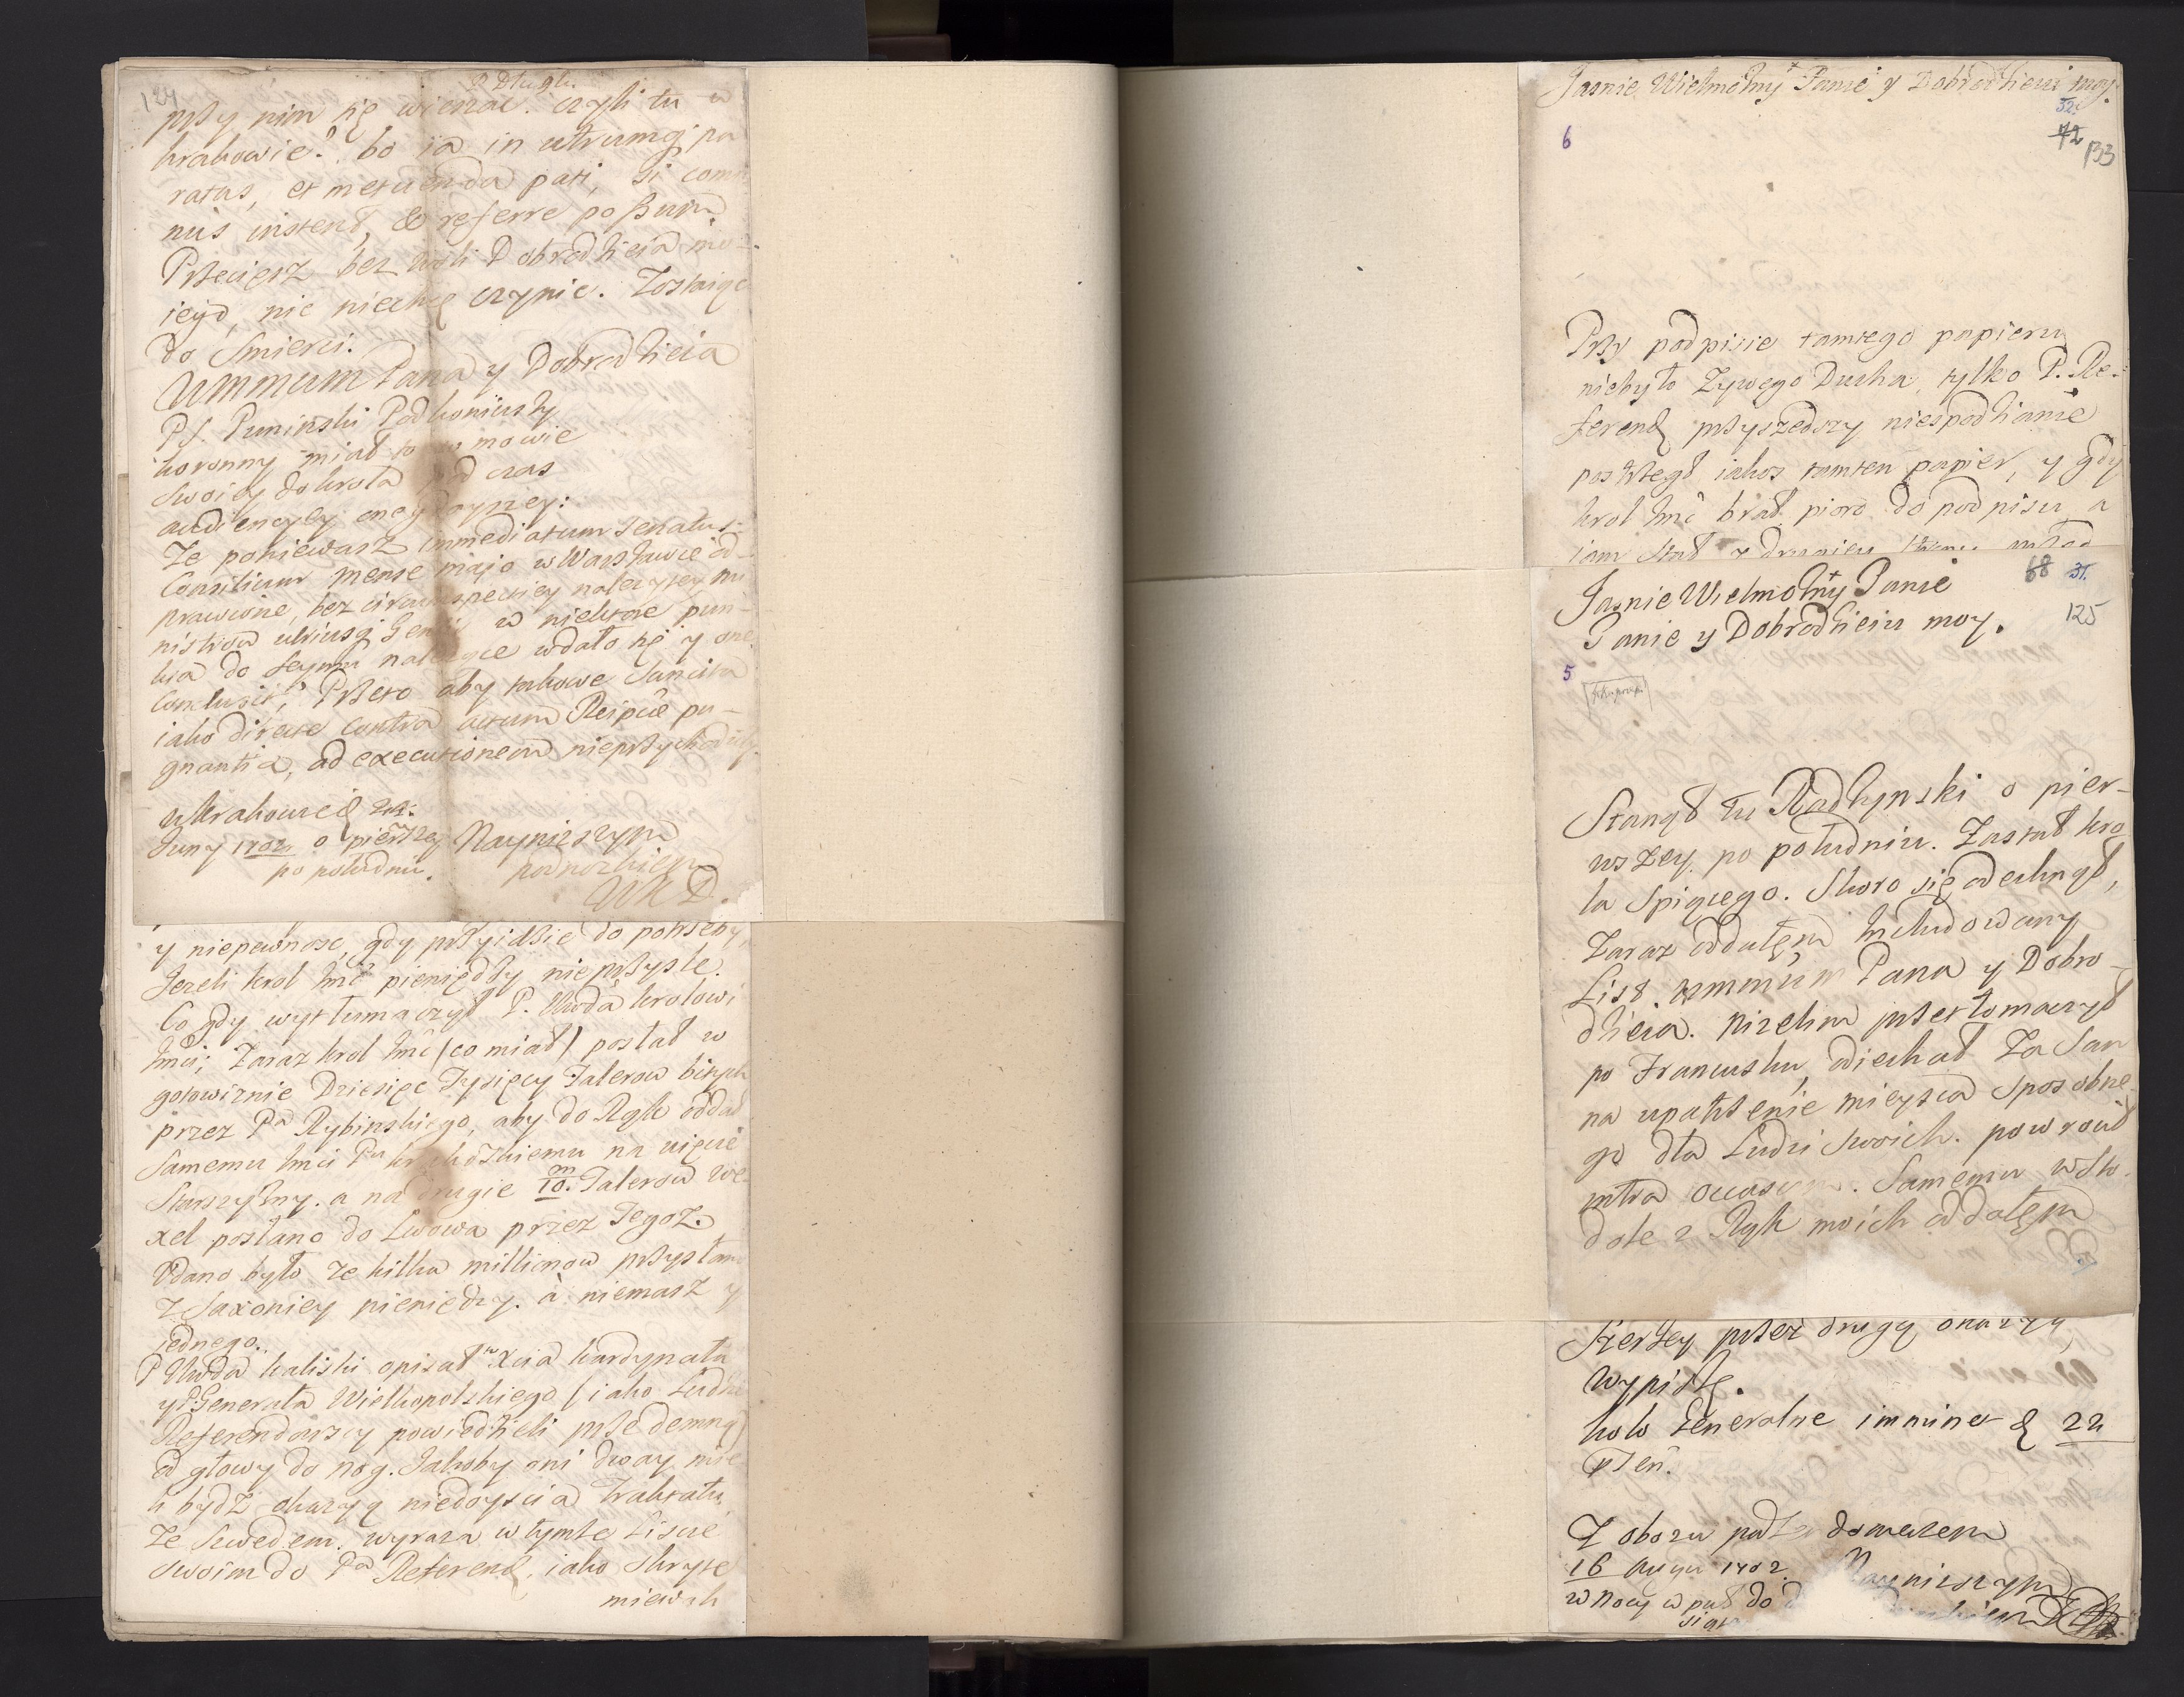 124
P Długu.
przy nim się wieszac. czyli tu w
krakowie? bo ia in utrumq; pa
ratus, et metuenda pati, si comi
nus instent, & referre possum
Przeciesz bez woli Dobrodzieia mo
iego, nic niechcę czynic. Zostaiąc
do Smierci.
Ummum Pana y Dobrodzieia
PS. Puninski Podkoniuszy
koronny miał w mowie
swoiey do krola czas
audiencyey
Ze poniewasz immediatum Senatus
Consilium mense majo w Warszawie od
prawione, bez circumspectiey należytey mi
nistrow utriusq; Gentis w niektore pun
kta do Seymu należące wdało się y one
Conclusit; Przeto aby takowe Sancita
iako directe contra actum Reipcae pu-
gnantia, ad executionem nieprzychodziły
w Krakowie d 24
Juny 1702 o pierszey
po południu.
Nayniższym
podnozkiem
WM D.
y niepewnosc, gdy przyidzie do potrzeby
Jezeli krol Jmc pieniędzy nieprzysle.
Co gdy wytłumaczył P. Woda krolowi
Jmci; Zaraz krol Jmc (co miał) posłał w
gotowiznie Dziesięc Tysięcy Talerow bitych
przez Pa Rybinskiego, aby do Rąk oddał
Samemu Jmci Pu krakowskiemu na ujęcie
Starszyzny. a na drugie 10. m Talerow we-
xel posłano do Lwowa przez Tegoz.
Udano było, ze kilka millionow przysłano
z Saxoniey pieniędzy. à niemasz y
jednego.
P Woda kaliski opisał Xcia kardynała
y P Generała Wielkopolskiego (iako Ludzie
Referendarscy powiedzieli przedemną)
od głowy do nog. Jakoby oni dway mie
li bydz okazyą niedoyscia Traktatu
ze Szwedem. wyraza w tymze Liscie
swoim do Pa Referend. iako skryte
miewali
Jasnie Wielmozny Panie y Dobrodzieiu moy.
32.
72
133
6
Przy podpisie tamtego papieru
niebyło Zywego Ducha, tylko P. Re-
ferend przyszedszy niespodzianie
postrzegł iakos tamten papier, y gdy
krol Jmc brał pioro do podpisu, a
iam stał z drugiey
Jasnie Wielmozny Panie
Panie y Dobrodzieiu moy.
68 31.
125
5
Stanął tu Radzynski o pier-
wszey po południu. Zastał kro
la Spiącego. Skoro się odecknął,
Zaraz oddałem Includowany
List ummum Pana y Dobro-
dzieia. Nizelim przetłomaczył
po Francusku, odiechał Za San
na upatrzenie mieysca sposobne
go dla Ludzi swoich. powrocił
intra occasum. Samemu w Sto
dole z Rąk moich oddałem
Szerzey przez drugą okazyą,
wypiszę.
koło Generalne imminet d 22
pten.
Z obozu pod domierzem
16 Augu 1702.
w Nocy w puł do
Nayniższym